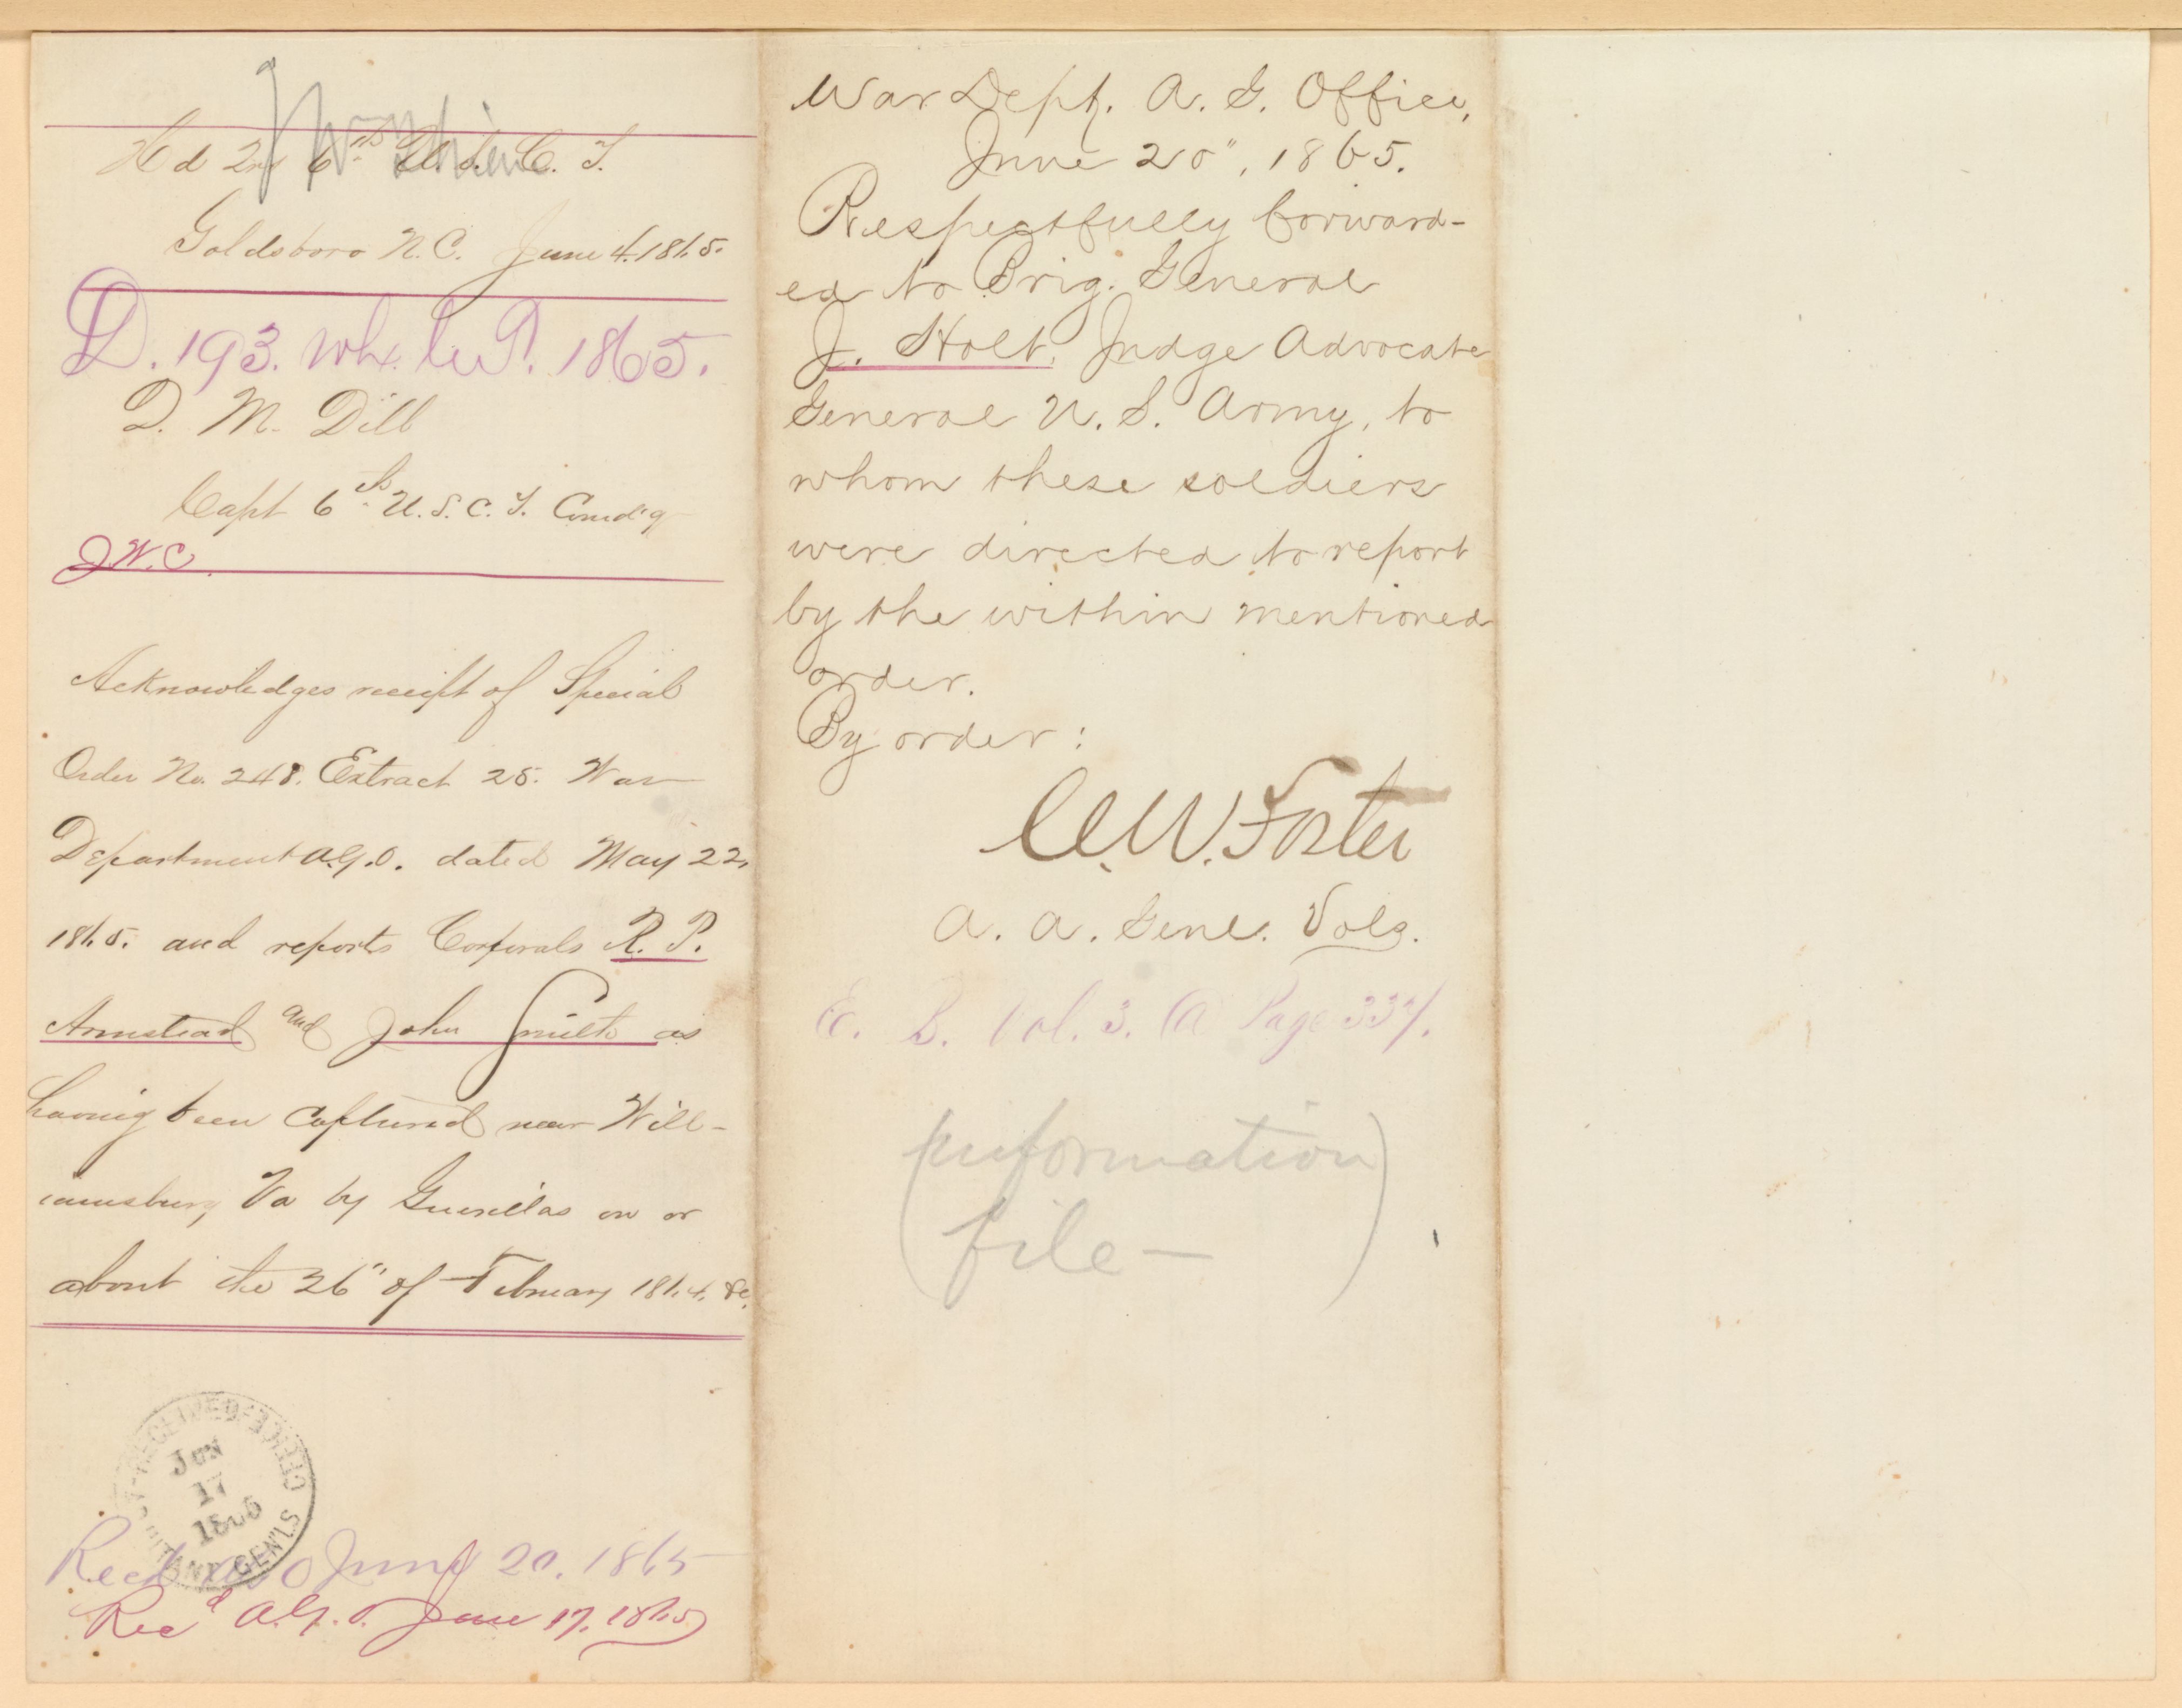 Hd Qrs 6th U.S.C.T.
Goldsboro N.C. June 4. 1865.
D. 193. 1865.
D. M. Dill
Capt 6th U.S.C.T. Comd'g
J.W.C.
Acknowledges receipt of Special
Order No. 248. Extract 25. War
Department A.G.O. dated May 22,
1865. and reports Corporals R. P.
Armstead and John Smith as
having been captured near Will-
iamsburg Va by Guerillas on or
about the 26" of February 1864. &c.
RECEIVED
JUN
17
1865
GEN'LS OFFICE
Recd June 20. 1865
Recd A.G.O. June 17, 1865
War Dept. A. G. Office,
June 20", 1865.
Respectfully forward-
ed to Brig. General
J. Holt, Judge Advocate
General U. S. Army, to
whom these soldiers
were directed to report
by the within mentioned
order.
By order:
C.W. Foster
A. A. Genl. Vols.
E. B. Vol. 3. Page
(information
file —)